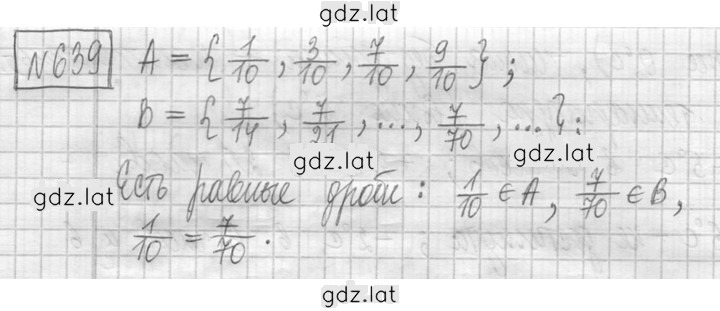 gdz.lat
№639 A = {1/10, 3/10, 7/10, 9/10};
B = {7/14, 7/21, ..., 7/70, ...}:
gdz.lat gdz.lat
gdz.lat
Есть равные дроби: 1/10 ∈ A, 7/70 ∈ B,
1/10 = 7/70.
gdz.lat